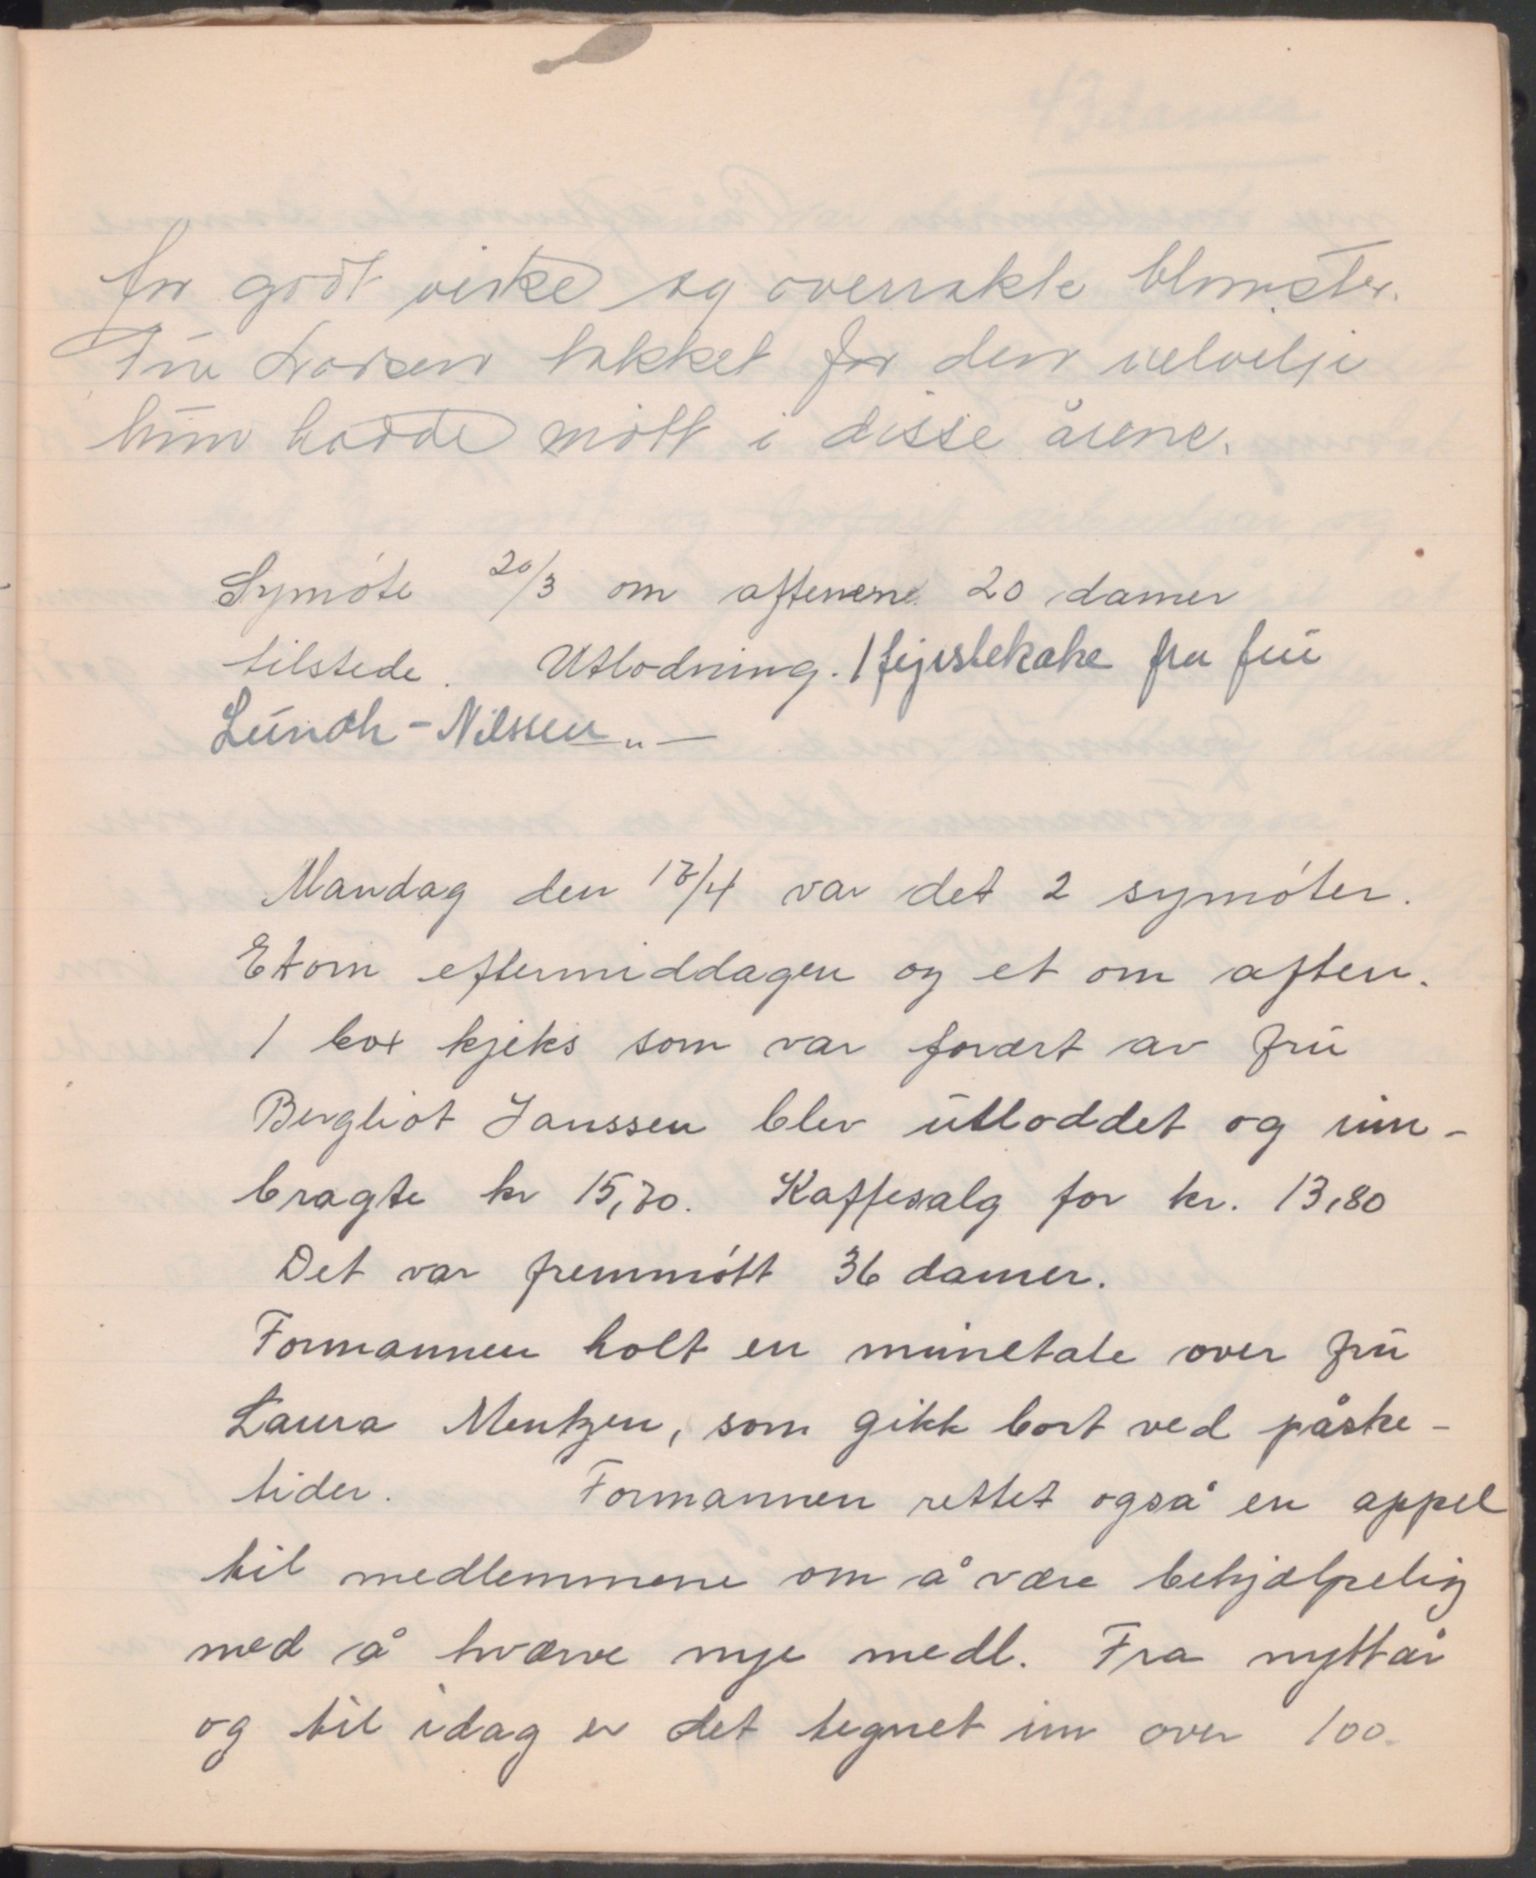 for godt virke og overrakte blomster.
Fru Larsen takket for den velvilje
hun hadde møtt i disse årene.
Symøte 20/3 om aftenen 20 damer
tilstede. Utlodning. 1 fyrstekake fra frú
Lúndh-Nilssen
Mandag den 18/4 var det 2 symøter.
Et om eftermiddagen og et om aften.
1 box kjeks som var foræret av frú
Bergliot Janssen blev útloddet og inn-
bragte kr 15,70. Kaffesalg for kr. 13,80
Det var fremmøtt 36 damer.
Formannen holt en minnetale over frú
Laura Mentzen, som gikk bort ved påske-
tider. Formannen rettet også en appel
til medlemmene om å være behjælpelig
med å hverve nye medl. Fra nyttår
og til idag er det tegnet inn over 100.